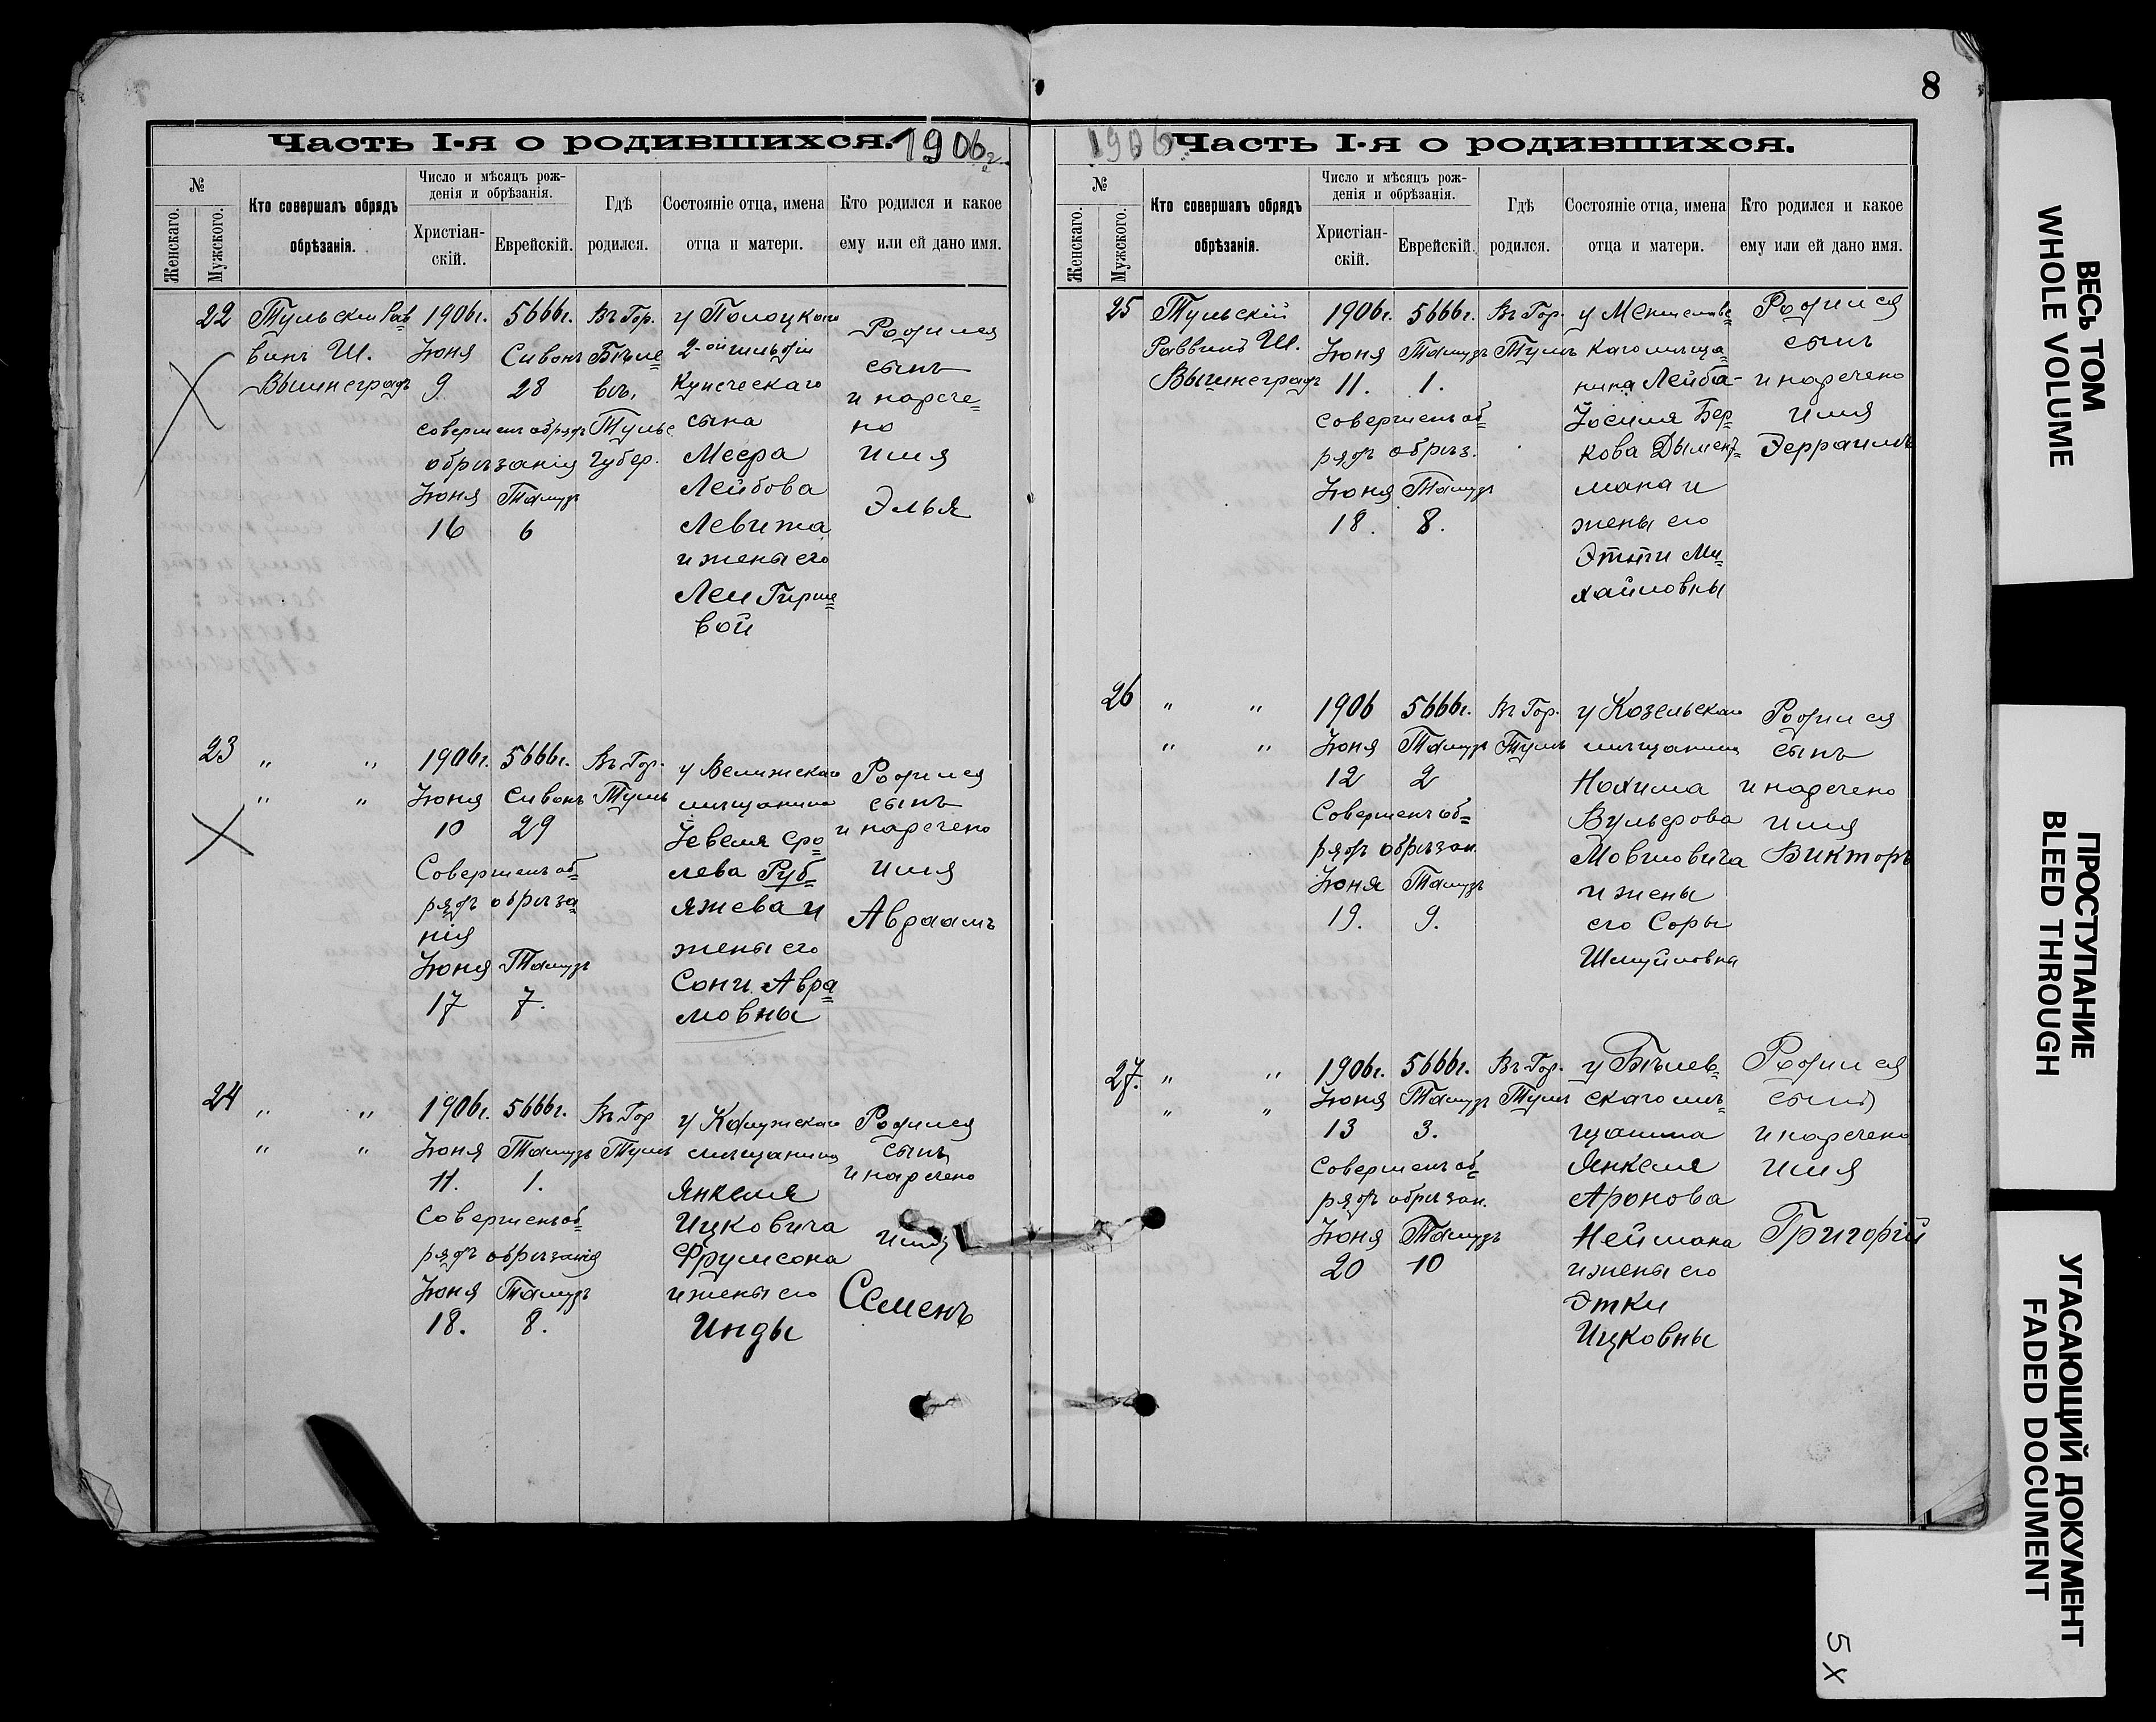 8
Часть I-я о родившихся. 1906 г.
№
Женскаго.
Мужского.
Кто совершалъ обрядъ
обрѣзанія.
Число и мѣсяцъ рож-
денія и обрѣзанія.
Христіан-
скій.
Еврейскій.
Гдѣ
родился.
Состояніе отца, имена
отца и матери.
Кто родился и какое
ему или ей дано имя.
22
Тульскій Рав
винъ Ш.
Вышнеградъ
1906г.
Іюня
9
5666г.
Сиванъ
28
совершенъ обрядъ
обрѣзанія
Іюня
16
Тамузъ
6
Въ Гор.
Бѣле
вѣ,
Тульс
губер.
у Полоцкаго
2-ой гильдіи
купеческаго
сына
Меера
Лейбова
Левита
и жены его
Леи Гирше
вой
Родился
сынъ
и нарече
но
имя
Элья
23
" "
" "
1906г.
Іюня
10
5666г.
Сиванъ
29
Совершенъ об
рядъ обрѣза
нія
Іюня
17
Тамузъ
7.
Въ Гор.
Тулѣ
у Велижскаго
мѣщанина
Іевеля Сро
лева Руб
яжева и
жены его
Сони Авра
мовны
Родился
сынъ
и наречено
имя
Авраамъ
24
" "
" "
1906г.
Іюня
11.
5666г.
Тамузъ
1.
Совершенъ об
рядъ обрѣзанія
Іюня
18.
Тамузъ
8.
Въ Гор
Тулѣ
у Калужскаго
мѣщанина
Янкеля
Ицковича
Фрумсона
и жены его
Инды
Родился
сынъ
и наречено
имя
Семенъ
1906 Часть I-я о родившихся.
№
Женскаго.
Мужского.
Кто совершалъ обрядъ
обрѣзанія.
Число и мѣсяцъ рож-
денія и обрѣзанія.
Христіан-
скій.
Еврейскій.
Гдѣ
родился.
Состояніе отца, имена
отца и матери.
Кто родился и какое
ему или ей дано имя.
25
Тульскій
Раввинъ Ш.
Вышнеградъ
1906г.
Іюня
11.
5666г.
Тамузъ
1.
Совершенъ об
рядъ обрѣз.
Іюня
18.
Тамузъ
8.
Въ Гор.
Тулѣ
каго мѣща
нина Лейба-
Іосиля Бер
кова Дымент
мана и
жены его
Этти Ми
хайловны
Родился
сынъ
и наречено
имя
26
" "
" "
1906
Іюня
12
5666г.
Тамузъ
2
Совершенъ об
рядъ обрѣзан.
Іюня
19.
Тамузъ
9.
Въ Гор.
Тулѣ
у Козельскаго
мѣщанина
Нохима
Вульфова
Мовшовича
и жены
его Соры
Шмуйловны
Родился
сынъ
и наречено
имя
Викторъ
27.
" "
" "
1906г.
Іюня
13
5666г.
Тамузъ
3.
Совершенъ об
рядъ обрѣзан.
Іюня
20
Тамузъ
10
Въ Гор.
Тулѣ
у Бѣлев
скаго мѣ
щанина
Янкеля
Аронова
Неймана
и жены его
Этки
Ицковны
Родился
сынъ
и наречено
имя
Григорій
ВЕСЬ ТОМ
WHOLE VOLUME
ПРОСТУПАНИЕ
BLEED THROUGH
УГАСАЮЩИЙ ДОКУМЕНТ
FADED DOCUMENT
5X